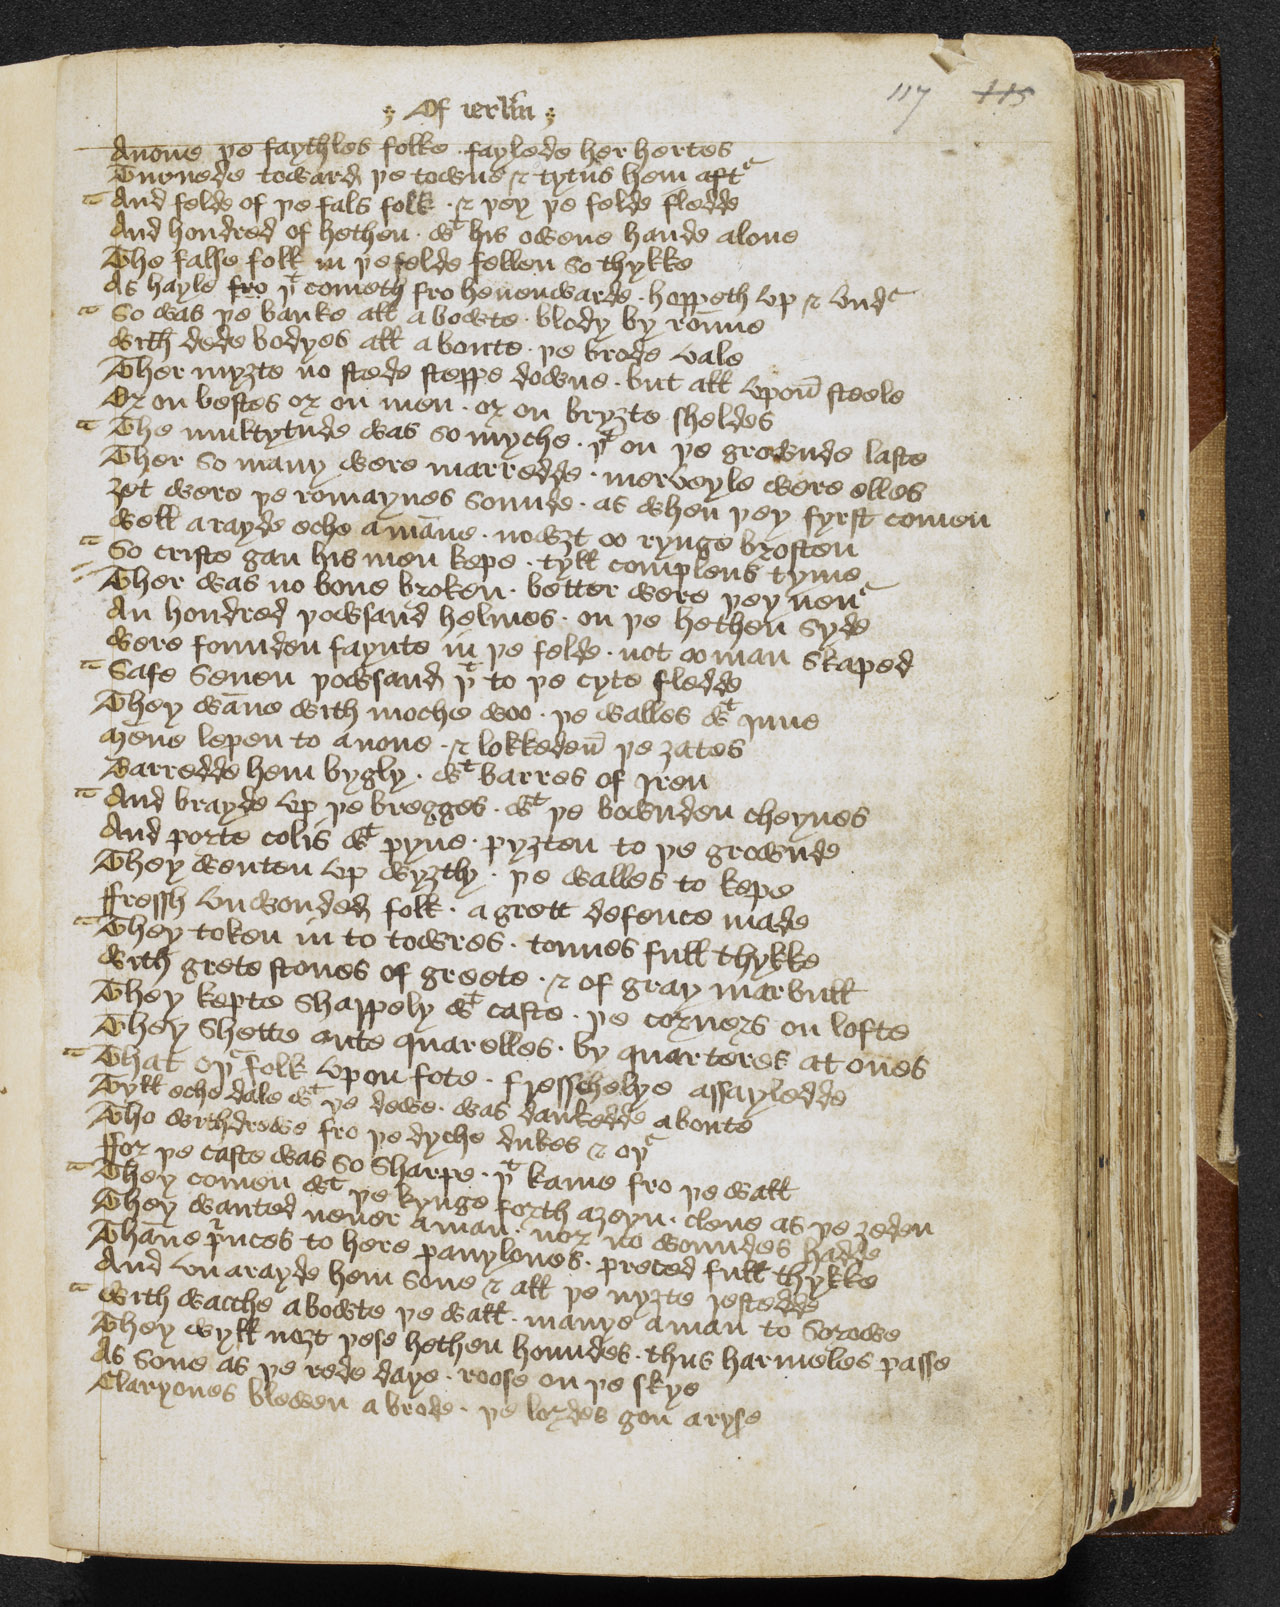 117 115
Of ierlm
Anone þe faythles folke · faylede her hertes
Turnede toward þe towne & tytus hem aft
And felde of þe fals folk · & þey þe felde fledde
And hondred of hethen · wt his owene hande alone
The false folk in þe felde fellen so thykke
As hayle fro þt cometh fro heuenwarde · hoppeth vp & vnd
So was þe banke all abowte · blody by ronne
With dede bodyes all aboute · þe brode vale
Ther myȝte no stede steppe downe · but all vpon steele
Or on bestes or on men · or on bryȝte sheldes
The multytude was so myche · þt on þe grownde laste
Ther so many were marredde · merveyle were elles
ȝet were þe romaynes sounde · as when þey fyrst comen
Well arayde eche a mane · nowȝt oo rynge brosten
So criste gan his men kepe · tyll complens tyme
Ther was no bone broken · better were þey neu
An hondred þowsand helmes · on þe hethen syde
Were founden faynte in þe felde · not oo man skaped
Safe seuen þowsand þt to þe cyte fledde
They wane with moche woo · þe walles wt ynne
Mene lepen to anone · & lokkeden þe ȝates
Barredde hem bygly · wt barres of yren
And brayde vp þe bregges · wt þe bownden cheynes
And porte colis wt pyne · pyȝten to þe grownde
They wenten vp wyȝtly · þe walles to kepe
ffressh vnwonded folk · a grett defence made
They token in to towres · tonnes full thykke
With grete stones of greete · & of gray marbull
They kepte shappely wt caste · þe corners on lofte
They shette oute quarelles · by quarteres at ones
That oþ folk vpon fote · fresschelye assayledde
Tyll eche dale wt þe dewe · was dankedde aboute
Tho withdrowe fro þe dyche dukes & oþ
ffor þe caste was so sharpe · þt kame fro þe wall
They comen wt þe kynge forth aȝeyn · clene as þe ȝeden
They wanted neuer a man · nor no woundes hadde
Thane pnces to here pauylones · preced full thykke
And vnarayde hem sone & all þe nyȝte restedde
With wacche abowte þe wall · manye a man to sorowe
They wyll noȝt þese hethen houndes · thus harmeles passe
As sone as þe rede daye · roose on þe skye
Claryones blewen abrode · þe lordes gon aryse